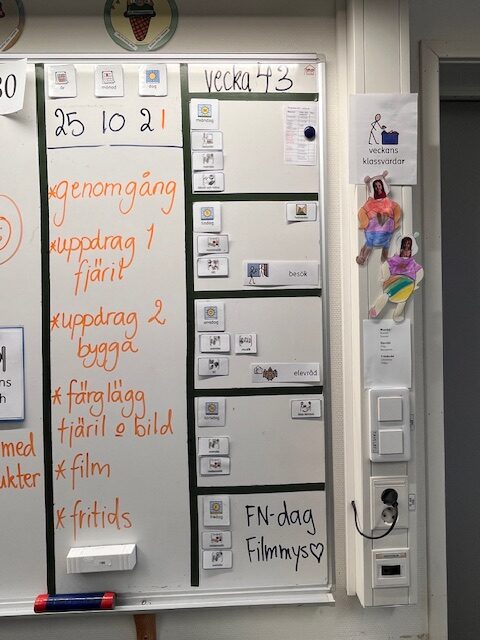 30
år månad dag
25 10 21
*genomgång
*uppdrag 1
fjäril
*uppdrag 2
bygga
*färglägg
fjäril o bild
*film
*fritids
ns
h
med
ukter
vecka 43
måndag
tisdag
besök
onsdag
elevråd
torsdag
fredag
FN-dag
Filmmys♡
veckans
klassvärdar